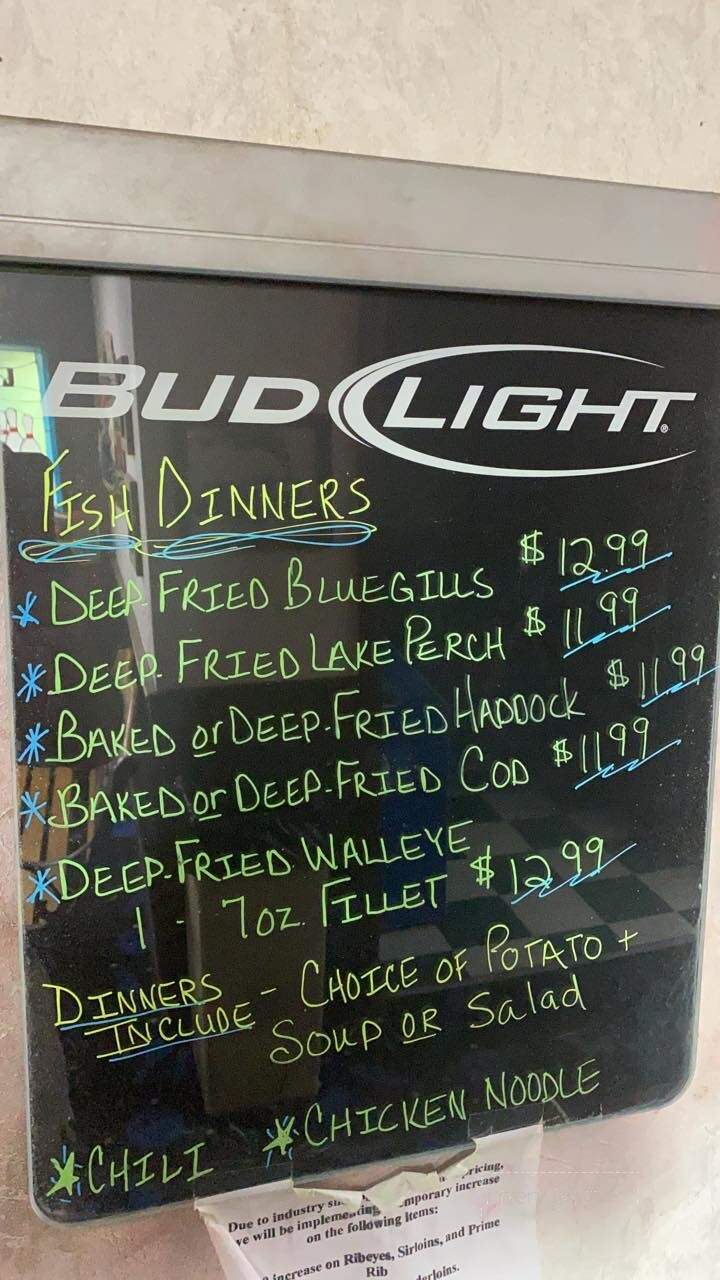 BUD LIGHT
FISH DINNERS
* DEEP-FRIED BLUEGILLS $12.99
* DEEP-FRIED LAKE PERCH $11.99
* BAKED or DEEP-FRIED HADDOCK $11.99
* BAKED or DEEP-FRIED COD $11.99
* DEEP-FRIED WALLEYE
1 - 7oz. FILLET $12.99
DINNERS INCLUDE - CHOICE OF POTATO +
SOUP OR Salad
* CHILI * CHICKEN NOODLE
pricing,
Due to industry
will be implementing temporary increase
on the following items:
increase on Ribeyes, Sirloins, and Prime
Rib